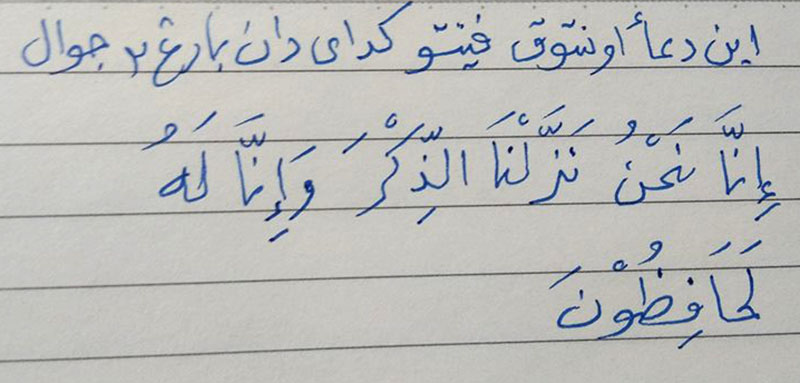 اين دعاأ اونتوق فينتو كداى دان بارڠ٢ جوال
إِنَّا نَحْنُ نَزَّلْنَا الذِّكْرَ وَإِنَّا لَهُ
لَحَافِظُوْنَ